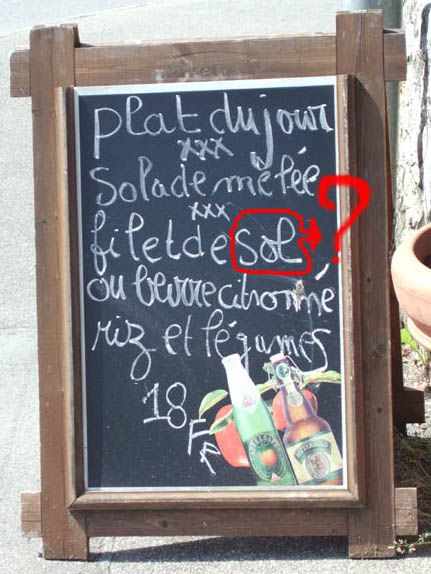 plat du jour
xxx
Salade mêlée
xxx
filet de Sol ?
au beurre citronné
riz et légumes
18 Fr